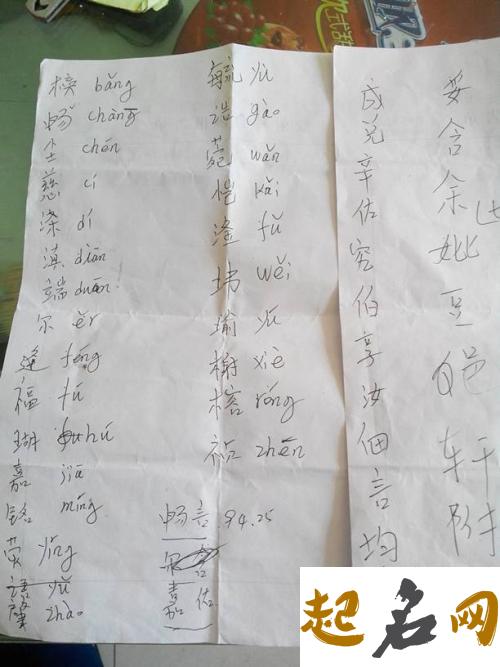 榜 bǎng
畅 chàng
尘 chén
慈 cí
涤 dí
滇 diān
端 duān
尔 ěr
逢 féng
福 fú
瑚 hú
嘉 jiā
铭 míng
英 yīng
语 yǔ
肇 zhào
毓 yù
诰 gào
菀 wǎn
恺 kǎi
滏 fǔ
玮 wěi
瑜 yú
榭 xiè
榕 róng
祯 zhēn
畅言 94.25
嘉佑
成
兑
辛
佐
究
伯
享
汝
佃
言
均
妥
含
余
妣
豆
皅
轩
附
起名网